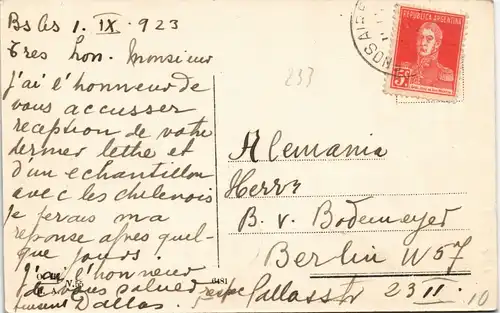 Bs As 1. IX. 923
Tres hon. Monsieur
j'ai l'honneur de
vous accusser
reception de votre
dernier lethe et
d'un echantillon
avec les chilenois
je ferais ma
reponse apres quel-
que jours.
J'ai l'honneur
de vous saluer respec
tivement Dallas.
233
BUENOS AIRES
REPUBLICA ARGENTINA
5
Alemania
Herrn
B. v. Bodemeyer
Berlin W 57
Pallasstr 23 II.
10
N. 55
6481